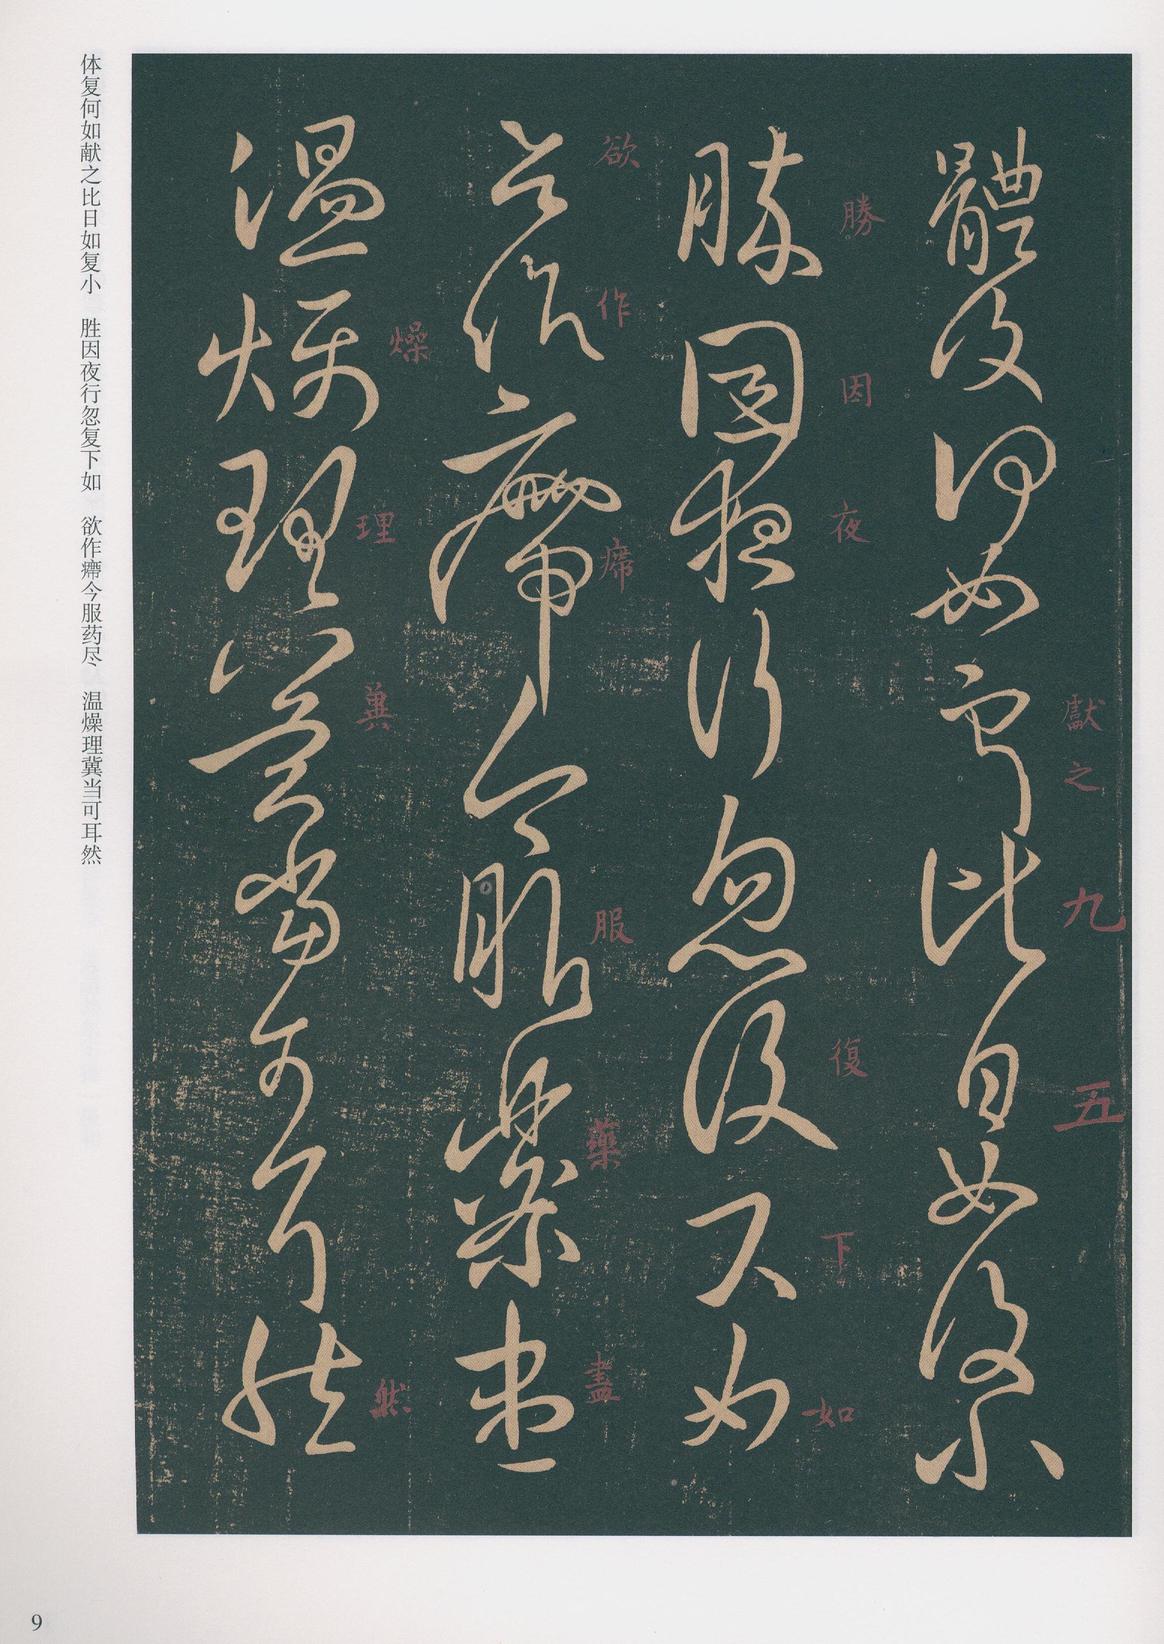 體復何如獻之比日如復小
勝因夜行忽復下如
欲作㿃今服藥盡
溫燥理冀當可耳然
獻之
九
五
勝
因
夜
復
下
如
欲
作
㿃
服
藥
盡
燥
理
冀
然
体复何如献之比日如复小 胜因夜行忽复下如 欲作㿃今服药尽 温燥理冀当可耳然
9